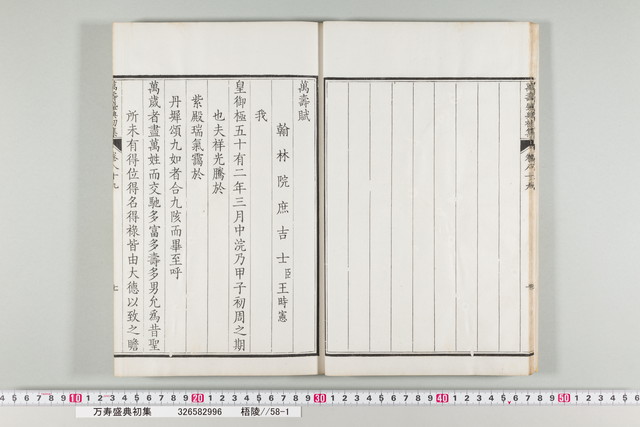 萬壽賦
翰林院庶吉士臣王時憲
我
皇御極五十有二年三月中浣乃甲子初周之期
也夫祥光騰於
紫殿瑞氣靄於
丹墀頌九如者合九陔而畢至呼
萬歲者盡萬姓而交馳多富多壽多男允為昔聖
所未有得位得名得祿皆由大德以致之瞻
七
万寿盛典初集 326582996 梧陵//58-1
10 20 30 40 50